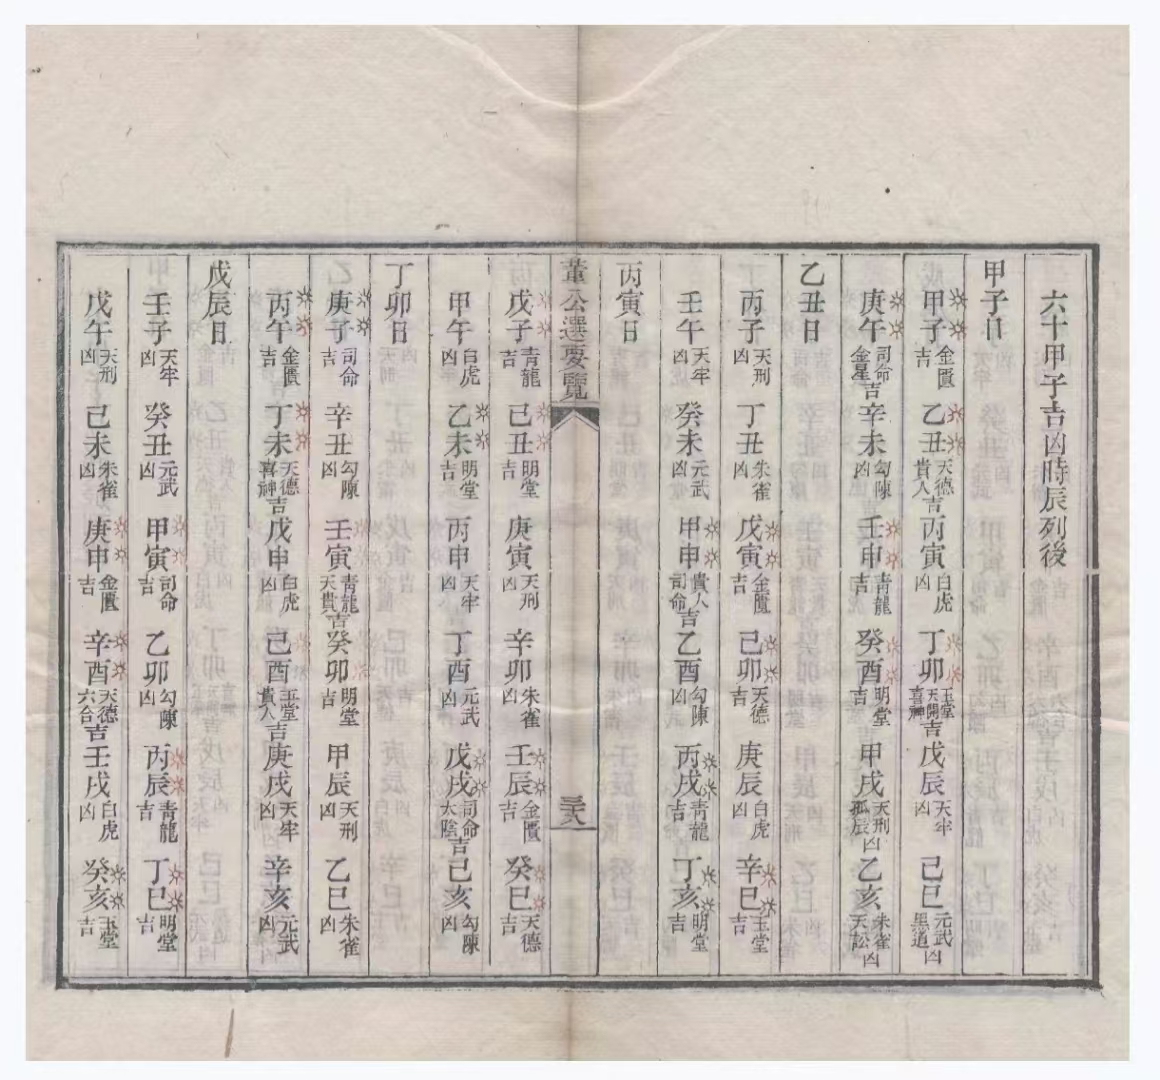 六十甲子吉凶時辰列後
甲子日
甲子金匱吉乙丑天德貴人吉丙寅白虎凶丁卯玉堂天開喜神吉戊辰天牢凶己巳元武黑道凶
庚午司命金星吉辛未勾陳凶壬申青龍吉癸酉明堂吉甲戌天刑孤辰凶乙亥朱雀天訟凶
乙丑日
丙子天刑凶丁丑朱雀凶戊寅金匱吉己卯天德吉庚辰白虎凶辛巳玉堂吉
壬午天牢凶癸未元武凶甲申貴人司命吉乙酉勾陳凶丙戌青龍吉丁亥明堂吉
丙寅日
董公選要覽
戊子青龍吉己丑明堂吉庚寅天刑凶辛卯朱雀凶壬辰金匱吉癸巳天德吉
甲午白虎凶乙未明堂吉丙申天牢凶丁酉元武凶戊戌司命太陰吉己亥勾陳凶
丁卯日
庚子司命吉辛丑勾陳凶壬寅青龍天貴吉癸卯明堂吉甲辰天刑凶乙巳朱雀凶
丙午金匱吉丁未天德喜神吉戊申白虎凶己酉玉堂貴人吉庚戌天牢凶辛亥元武凶
戊辰日
壬子天牢凶癸丑元武凶甲寅司命吉乙卯勾陳凶丙辰青龍吉丁巳明堂吉
戊午天刑凶己未朱雀凶庚申金匱吉辛酉天德六合吉壬戌白虎凶癸亥玉堂吉